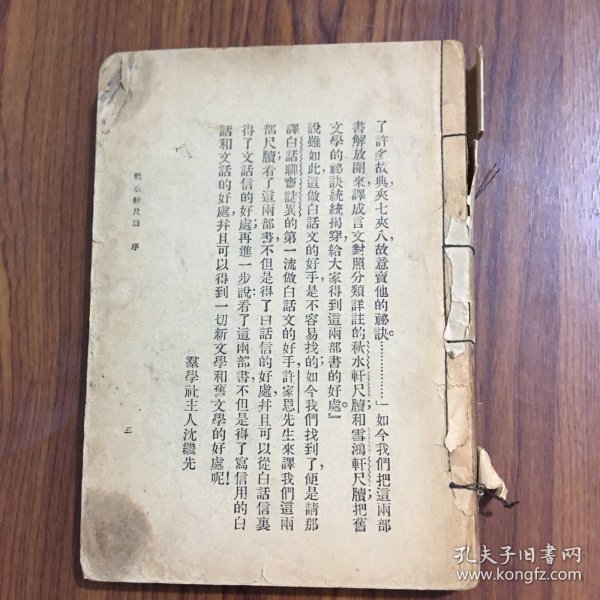 了許多故典夾七夾八故意賣他的祕訣。………………」如今我們把這兩部
書解放開來譯成言文對照分類詳註的秋水軒尺牘和雪鴻軒尺牘把舊
文學的祕訣統統揭穿給大家得到這兩部書的好處』。
說雖如此這做白話文的好手是不容易找的如今我們找到了便是請那
譯白話聊齋誌異的第一流做白話文的好手許家恩先生來譯我們這兩
部尺牘看了這兩部書不但是得了白話信的好處幷且可以從白話信裏
得了文話信的好處再進一步說看了這兩部書不但是得了寫信用的白
話和文話的好處幷且可以得到一切新文學和舊文學的好處呢!
羣學社主人沈繼先
秋水軒尺牘 序
三
孔夫子旧书网
www.kongfz.com